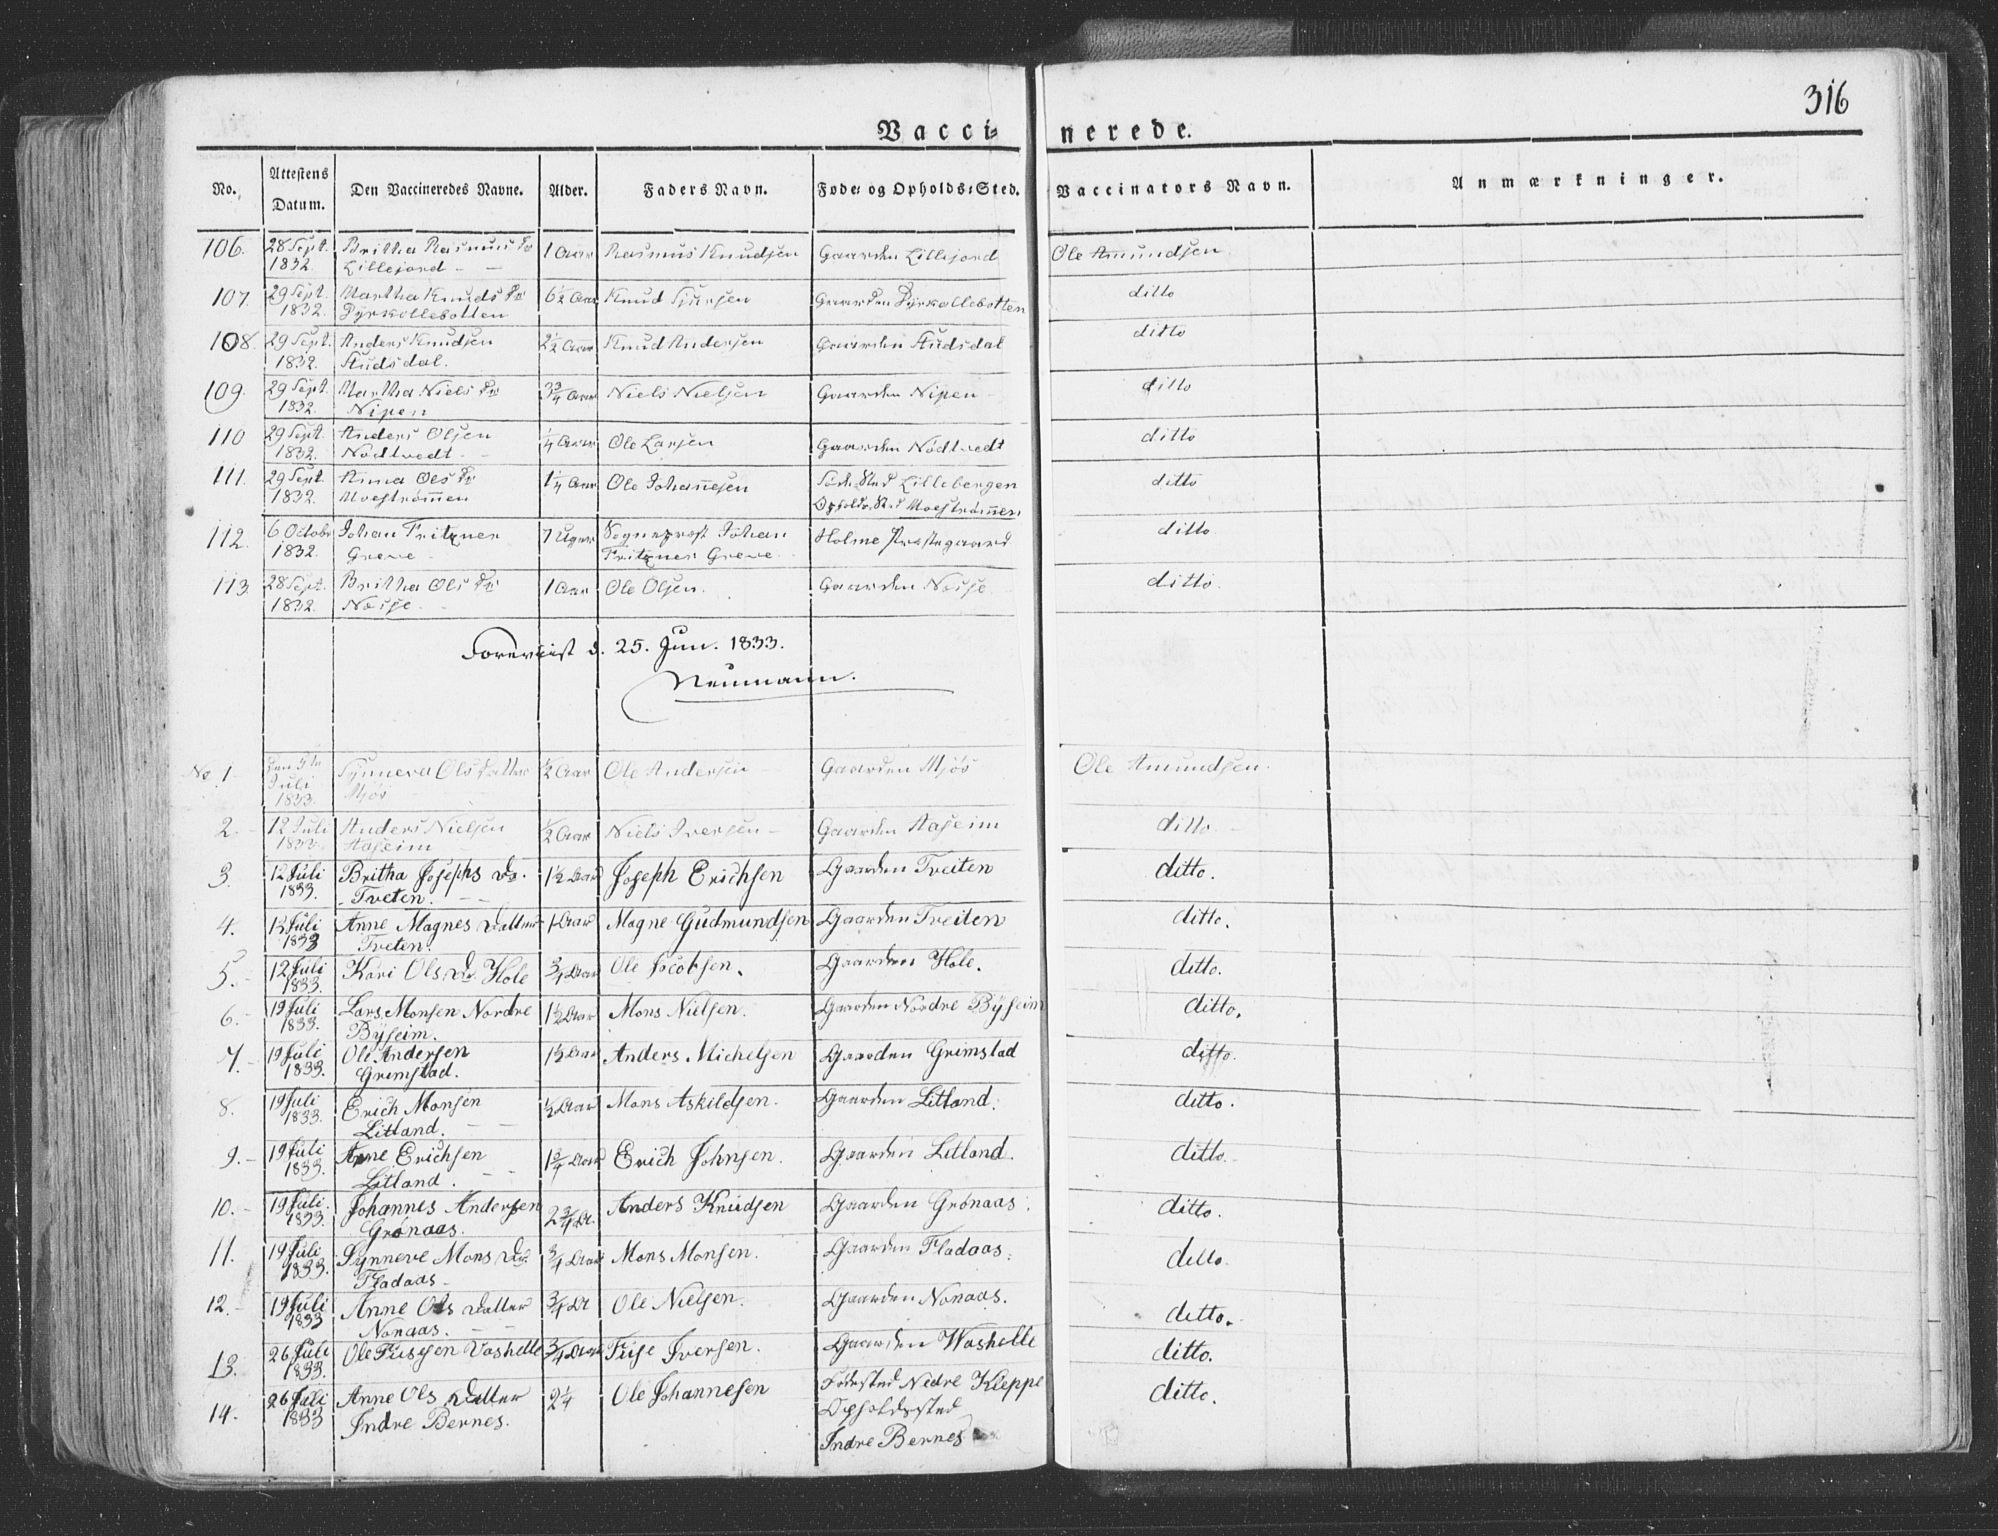 316
Vacci- nerede.
No. Attestens Datum. Den Vaccineredes Navne. Alder. Faders Navn. Føde- og Opholds-Sted. Vaccinators Navn. Anmærkninger.
106. 28 Sept. Britha Rasmus Dr 1 Aar Rasmus Knudsen Gaarden Lillejord Ole Amundsen
1832. Lillejord
107. 29 Sept. Martha Knuds Dr 6½ Aar Knud Sjursen Gaarden Dyrkollebotten ditto
1832. Dyrkollebotten
108. 29 Sept. Anders Knudsen 2½ Aar Knud Andersen Gaarden Studsdal ditto
1832. Studsdal.
109. 29 Sept. Martha Niels Dr 3¾ Aar Niels Nielsen Gaarden Nipen ditto
1832. Nipen
110 29 Sept. Anders Olsen ¼ Aar Ole Larsen Gaarden Nødtvedt ditto
1832. Nødtvedt
111. 29 Sept. Anna Ols Dr 1¼ Aar Ole Johannesen Føde Sted Lillebergen ditto
1832. Moestrømen Opholds Sted Moestrømen
112. 6 Octobr Johan Fritzner 7 Uger Sogneprest Johan Holme Præstegaard ditto
1832. Greve Fritzner Greve
113. 28 Sept. Britha Ols Dr 1 Aar Ole Olsen. Gaarden Nøsse ditto.
1832. Nøsse.
Foreviist d. 25. Jun. 1833.
Neumann.
No. 1 Den 5te Synneva Ols Datter ½ Aar Ole Andersen Gaarden Mjøs Ole Amundsen.
Juli Mjøs
1833.
2. 12 Juli Anders Nielsen ½ Aar Niels Iversen Gaarden Aaseim ditto.
1833. Aaseim
3. 12 Juli Britha Josephs Dr. 1½ Aar Joseph Erichsen Gaarden Treiten ditto.
1833. Tveten.
4. 12 Juli Anne Magnes Datter 1 Aar Magne Gudmundsen Gaarden Treiten ditto.
1833 Tveten.
5. 12 Juli Kari Ols Dr Hole ¾ Aar Ole Jacobsen. Gaarden Hole. ditto.
1833.
6. 19 Juli Lars Monsen Nordre 1½ Aar Mons Nielsen. Gaarden Nordre Byseim ditto.
1833. Byseim.
7. 19 Juli Ole Andersen 1½ Aar Anders Michelsen Gaarden Grimstad ditto.
1833. Grimstad.
8. 19 Juli Erich Monsen ½ Aar Mons Askildsen. Gaarden Litland. ditto.
1833. Litland.
9. 19 Juli Anne Erichsen 1¾ Aar Erich Johnsen. Gaarden Litland. ditto.
1833. Litland.
10. 19 Juli. Johannes Andersen 2¾ A. Anders Knudsen Gaarden Grønaas. ditto.
1833. Grønaas.
11. 19 Juli Synneve Mons Dr. ¾ Aar Mons Monsen. Gaarden Fladaas. ditto.
1833. Fladaas
12. 19 Juli Anne Ols Datter ¾ A Ole Nielsen. Gaarden Nonaas. ditto.
1833 Nonaas.
13. 26 Juli Ole Fussen Vashelle ¾ Aar Fuse Iversen. Gaarden Washelle ditto.
1833.
14. 26 Juli Anne Ols Datter 2¼ Ole Johannesen Fødested Nedre Kleppe ditto.
1833 Indre Bernes. Opholdssted
Indre Bernes